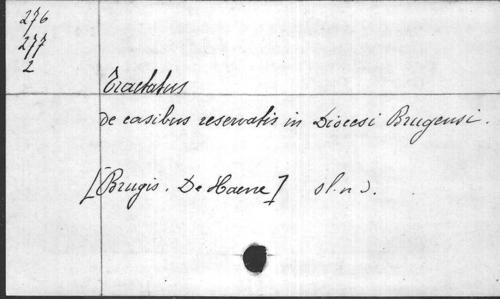 276
277
2
Tractatus
de casibus reservatis in Diocesi Brugensi.
[Brugis. De Haene] sl. n d.